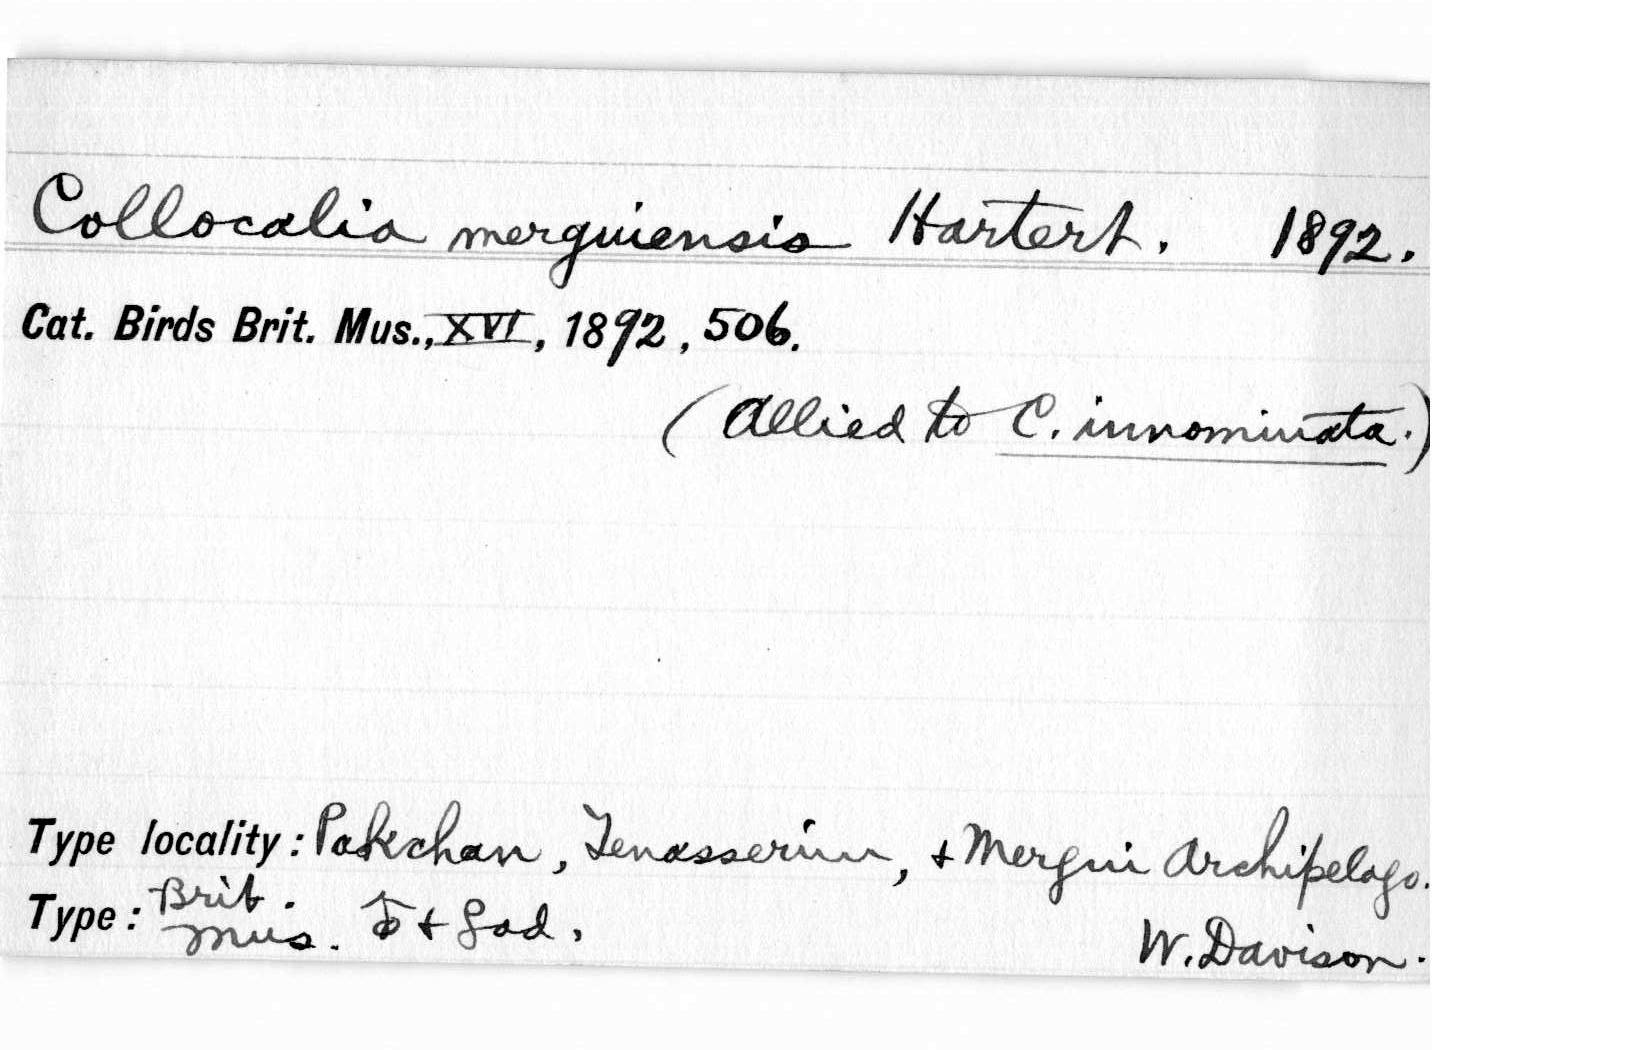 Collocalia merguiensis Hartert. 1892.
Cat. Birds Brit. Mus., XVI, 1892, 506.
(Allied to C. innominata.)
Type locality: Pakchan, Tenasserim, + Mergui Archipelago.
Type: Brit. Mus. ♂ + ad.
W. Davison.